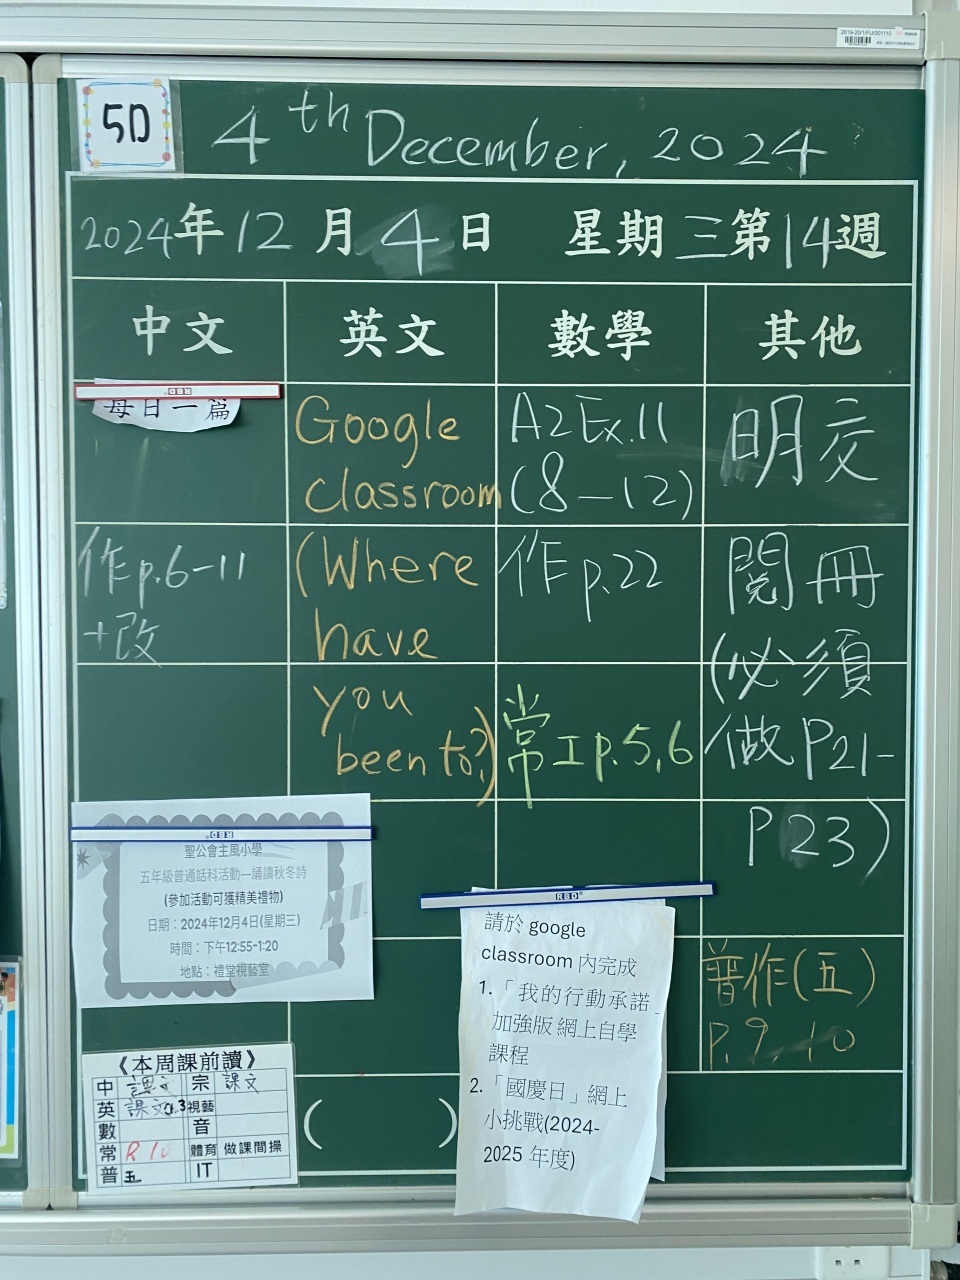 5D
4th December, 2024
2024年12月4日 星期三第14週
中文 英文 數學 其他
每日一篇
作p.6-11
+改
Google
classroom
(Where
have
you
been to?)
A2 Ex.11
(8-12)
作p.22
常工p.5,6
明交
閱冊
(必須
做P21-
P23)
普作(五)
p.9, 10
( )
RBD
聖公會主風小學
五年級普通話科活動—誦讀秋冬詩
(參加活動可獲精美禮物)
日期：2024年12月4日(星期三)
時間：下午12:55-1:20
地點：禮堂視藝室
RBD
請於 google
classroom 內完成
1.「我的行動承諾」
加強版 網上自學
課程
2.「國慶日」網上
小挑戰(2024-
2025 年度)
《本周課前讀》
中 課文 宗 課文
英 課文 視藝
數 音
常 R 10 體育 做課間操
普 五 IT